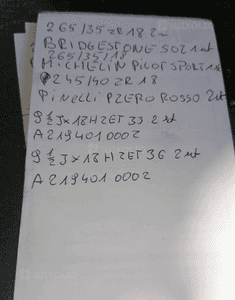 265/35 ZR 18 2
BRIDGESTONE S02 1 ut
265/35/18
MICHELIN PILOT SPORT 1
245/40 ZR 18
PINELLI PZERO ROSSO 2ut
9 1/2 J×18 H2 ET 33 2 ut
A2194010002
9 1/2 J×18 H2ET 36 2 ut
A 219401 0002